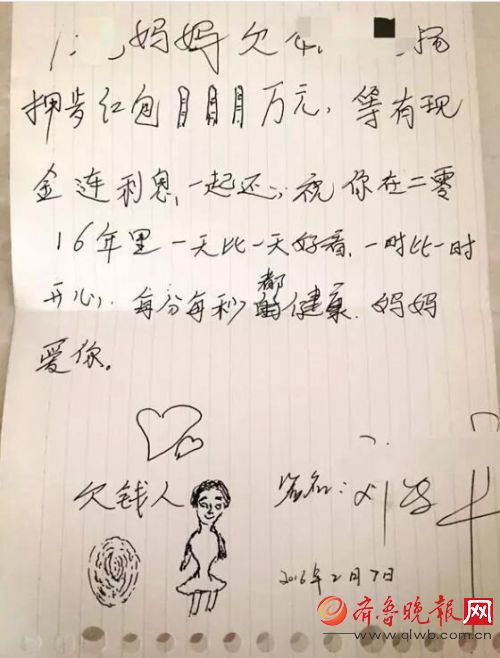 妈妈欠
押岁红包月月月万元，等有现
金连利息，一起还，祝你在二零
16年里一天比一天好看，一时比一时
开心，每分每秒都健康，妈妈
爱你。
欠钱人
签名：刘
2016年2月7日
齐鲁晚报网
www.qlwb.com.cn